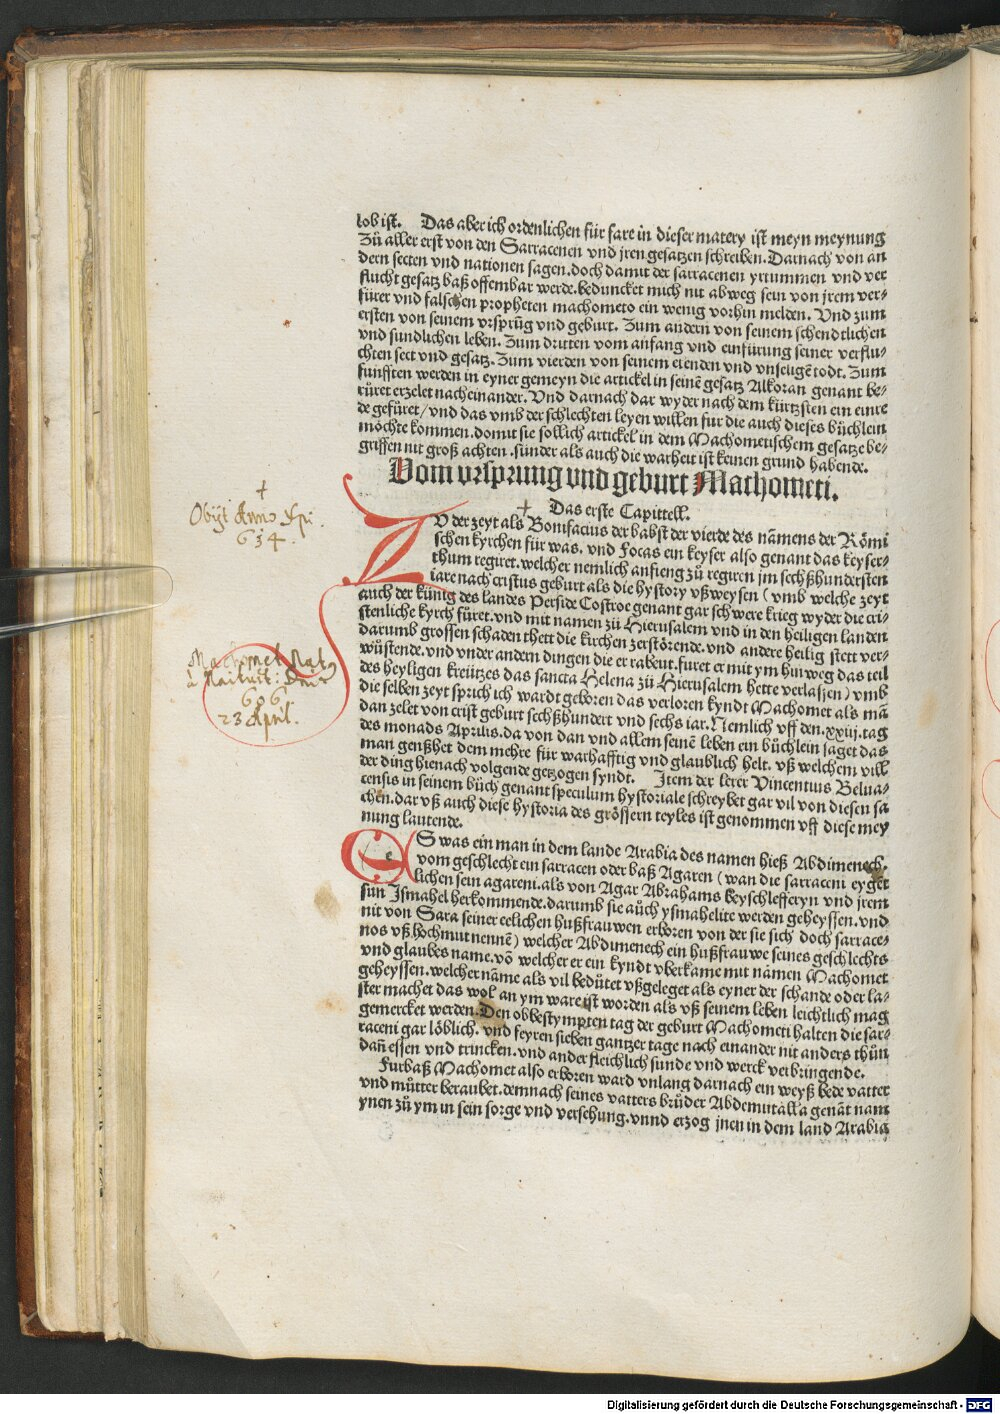 lob ist. Das aber ich ordenlichen für fare in dieser matery ist meyn meynung
Zů aller erst von den Sarracenen vnd jren gesatzen schreiben. Darnach von an
dern secten vnd nationen sagen. doch damit der sarracenen yrtummen vnd ver
flucht gesatz baß offembar werde. beduncket mich nit abweg sein von jrem ver⸗
fürer vnd falschen propheten machometo ein wenig vorhin melden. Vnd zum
ersten von seinem vrsprūg vnd geburt. Zum andern von seinem schendtlichen
vnd sundlichen leben. Zum dritten vom anfang vnd einfürung seiner verflu⸗
chten sect vnd gesatz. Zum vierden von seinem elenden vnd vnseligē todt. Zum
funfften werden in eyner gemeyn die artickel in seinē gesatz Alkoran genant be⸗
rüret erzelet nacheinander. Vnd darnach dar wyder nach dem kürtzsten ein einre
de gefüret/ vnd das vmb der schlechten leyen willen für die auch dieses büchlein
möchte kommen. domit sie sollich artickel in dem Machometischem gesatze be⸗
griffen nit groß achten. sünder als auch die warheit ist keinen grund habende.
Vom vrsprung vnd geburt Machometi.
Das erste Capittell.
ZV der zeyt als Bonifacius der babst der vierde des nāmens der Römi
schen kyrchen für was. vnd Focas ein keyser also genant das keyser⸗
thum regiret. welcher nemlich anfieng zů regiren jm sechßhundersten
iare nach cristus geburt als die hystory vßweysen (vmb welche zeyt
auch der künig des landes Perside Costroe genant gar schwere krieg wyder die cri⸗
stenliche kyrch füret. vnd mit namen zů Hierusalem vnd in den heiligen landen
darumb grossen schaden thett die kirchen zerstörende. vnd andere heilig stett ver⸗
wüstende. vnd vnder andern dingen die er rabeut. furet er mit ym hin weg das teil
des heyligen kreützes das sancta Helena zů Hierusalem hette verlassen) vmb
die selben zeyt sprich ich wardt geboren das verloren kyndt Machomet als mā
dan zelet von crist geburt sechßhundert vnd sechs iar. Nemlich vff den. xxiij. tag
des monads Aprilis. da von dan vnd allem seinē leben ein büchlein saget das
man genßhet dem mehre für warhafftig vnd glaublich helt. vß welchem vill
der ding hienach volgende gezogen syndt. Item der lerer Vincentius Belua⸗
censis in seinem büch genant speculum hystoriale schreybet gar vil von diesen sa
chen. dar vß auch diese hystoria des grössern teyles ist genommen vff diese mey
nung lautende.
ES was ein man in dem lande Arabia des namen hieß Abdimenech.
vom geschlecht ein sarracen oder baß Agaren (wan die sarraceni eygēt
lichen sein agareni. als von Agar Abrahams beyschlefferyn vnd jrem
sun Ismahel herkommende. darumb sie aůch ysmahelite werden geheyssen. vnd
nit von Sara seiner eelichen hußfrauwen erboren von der sie sich doch sarrace⸗
nos vß hochmut nennē) welcher Abdimenech ein hußfrauwe seines geschlechts
vnd glaubes name. vō welcher er ein kyndt vberkame mit nāmen Machomet
geheyssen. welcher nāme als vil bedütet vßgeleget als eyner der schande oder la⸗
ster machet das wol an ym ware ist worden als vß seinem leben leichtlich mag
gemercket werden. Den obbestympten tag der geburt Machometi halten die sar⸗
raceni gar löblich. vnd feyren sieben gantzer tage nach einander nit anders thün
dañ essen vnd trincken. vnd ander fleichlich sunde vnd werck verbringende.
Furbaß Machomet also erboren ward vnlang darnach ein weyß bede vatter
vnd můtter beraubet. demnach seines vatters brůder Abdemutalla genāt nam
ynen zů ym in sein sorge vnd versehung. vnnd erzog jnen in dem land Arabia
Obijt Anno Xpi.
634.
Machomet Nat9
606
23 April.
Digitalisierung gefördert durch die Deutsche Forschungsgemeinschaft - DFG